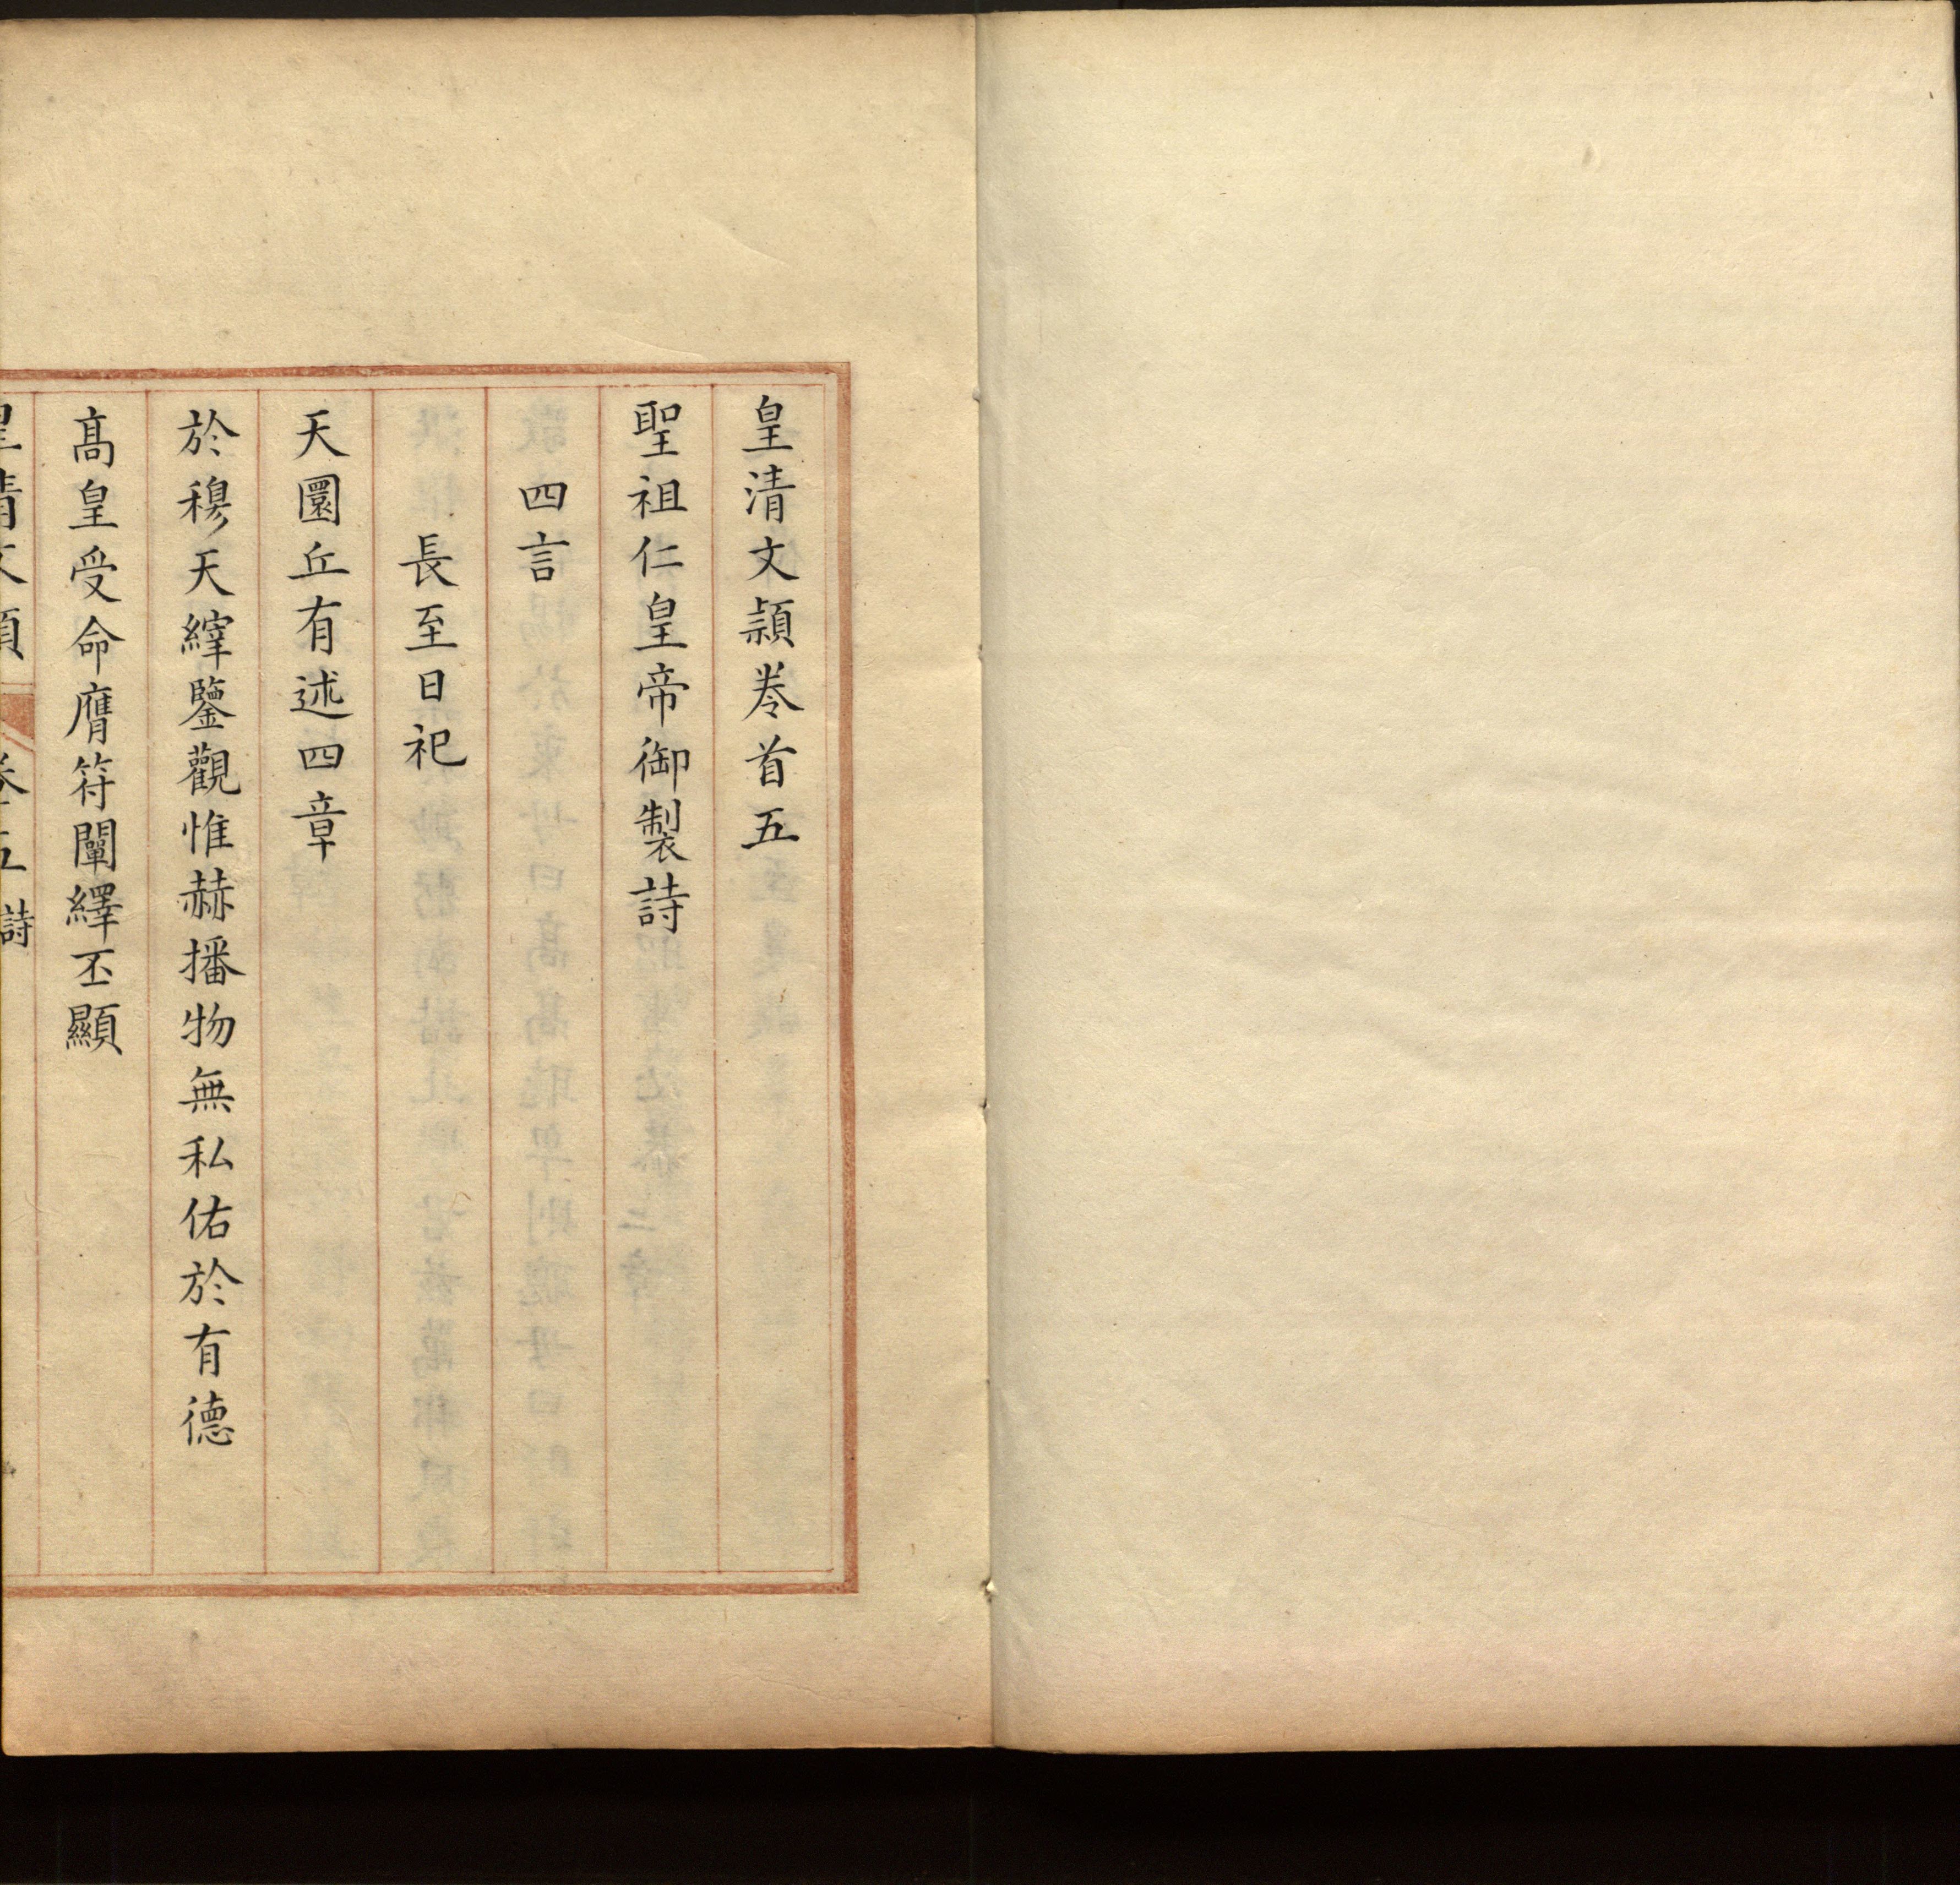 皇清文頴卷首五
聖祖仁皇帝御製詩
四言
長至日祀
天圜丘有述四章
於穆天縡鑒觀惟赫播物無私佑於有德
高皇受命膺符闡繹丕顯
皇清文頴 卷首五 詩